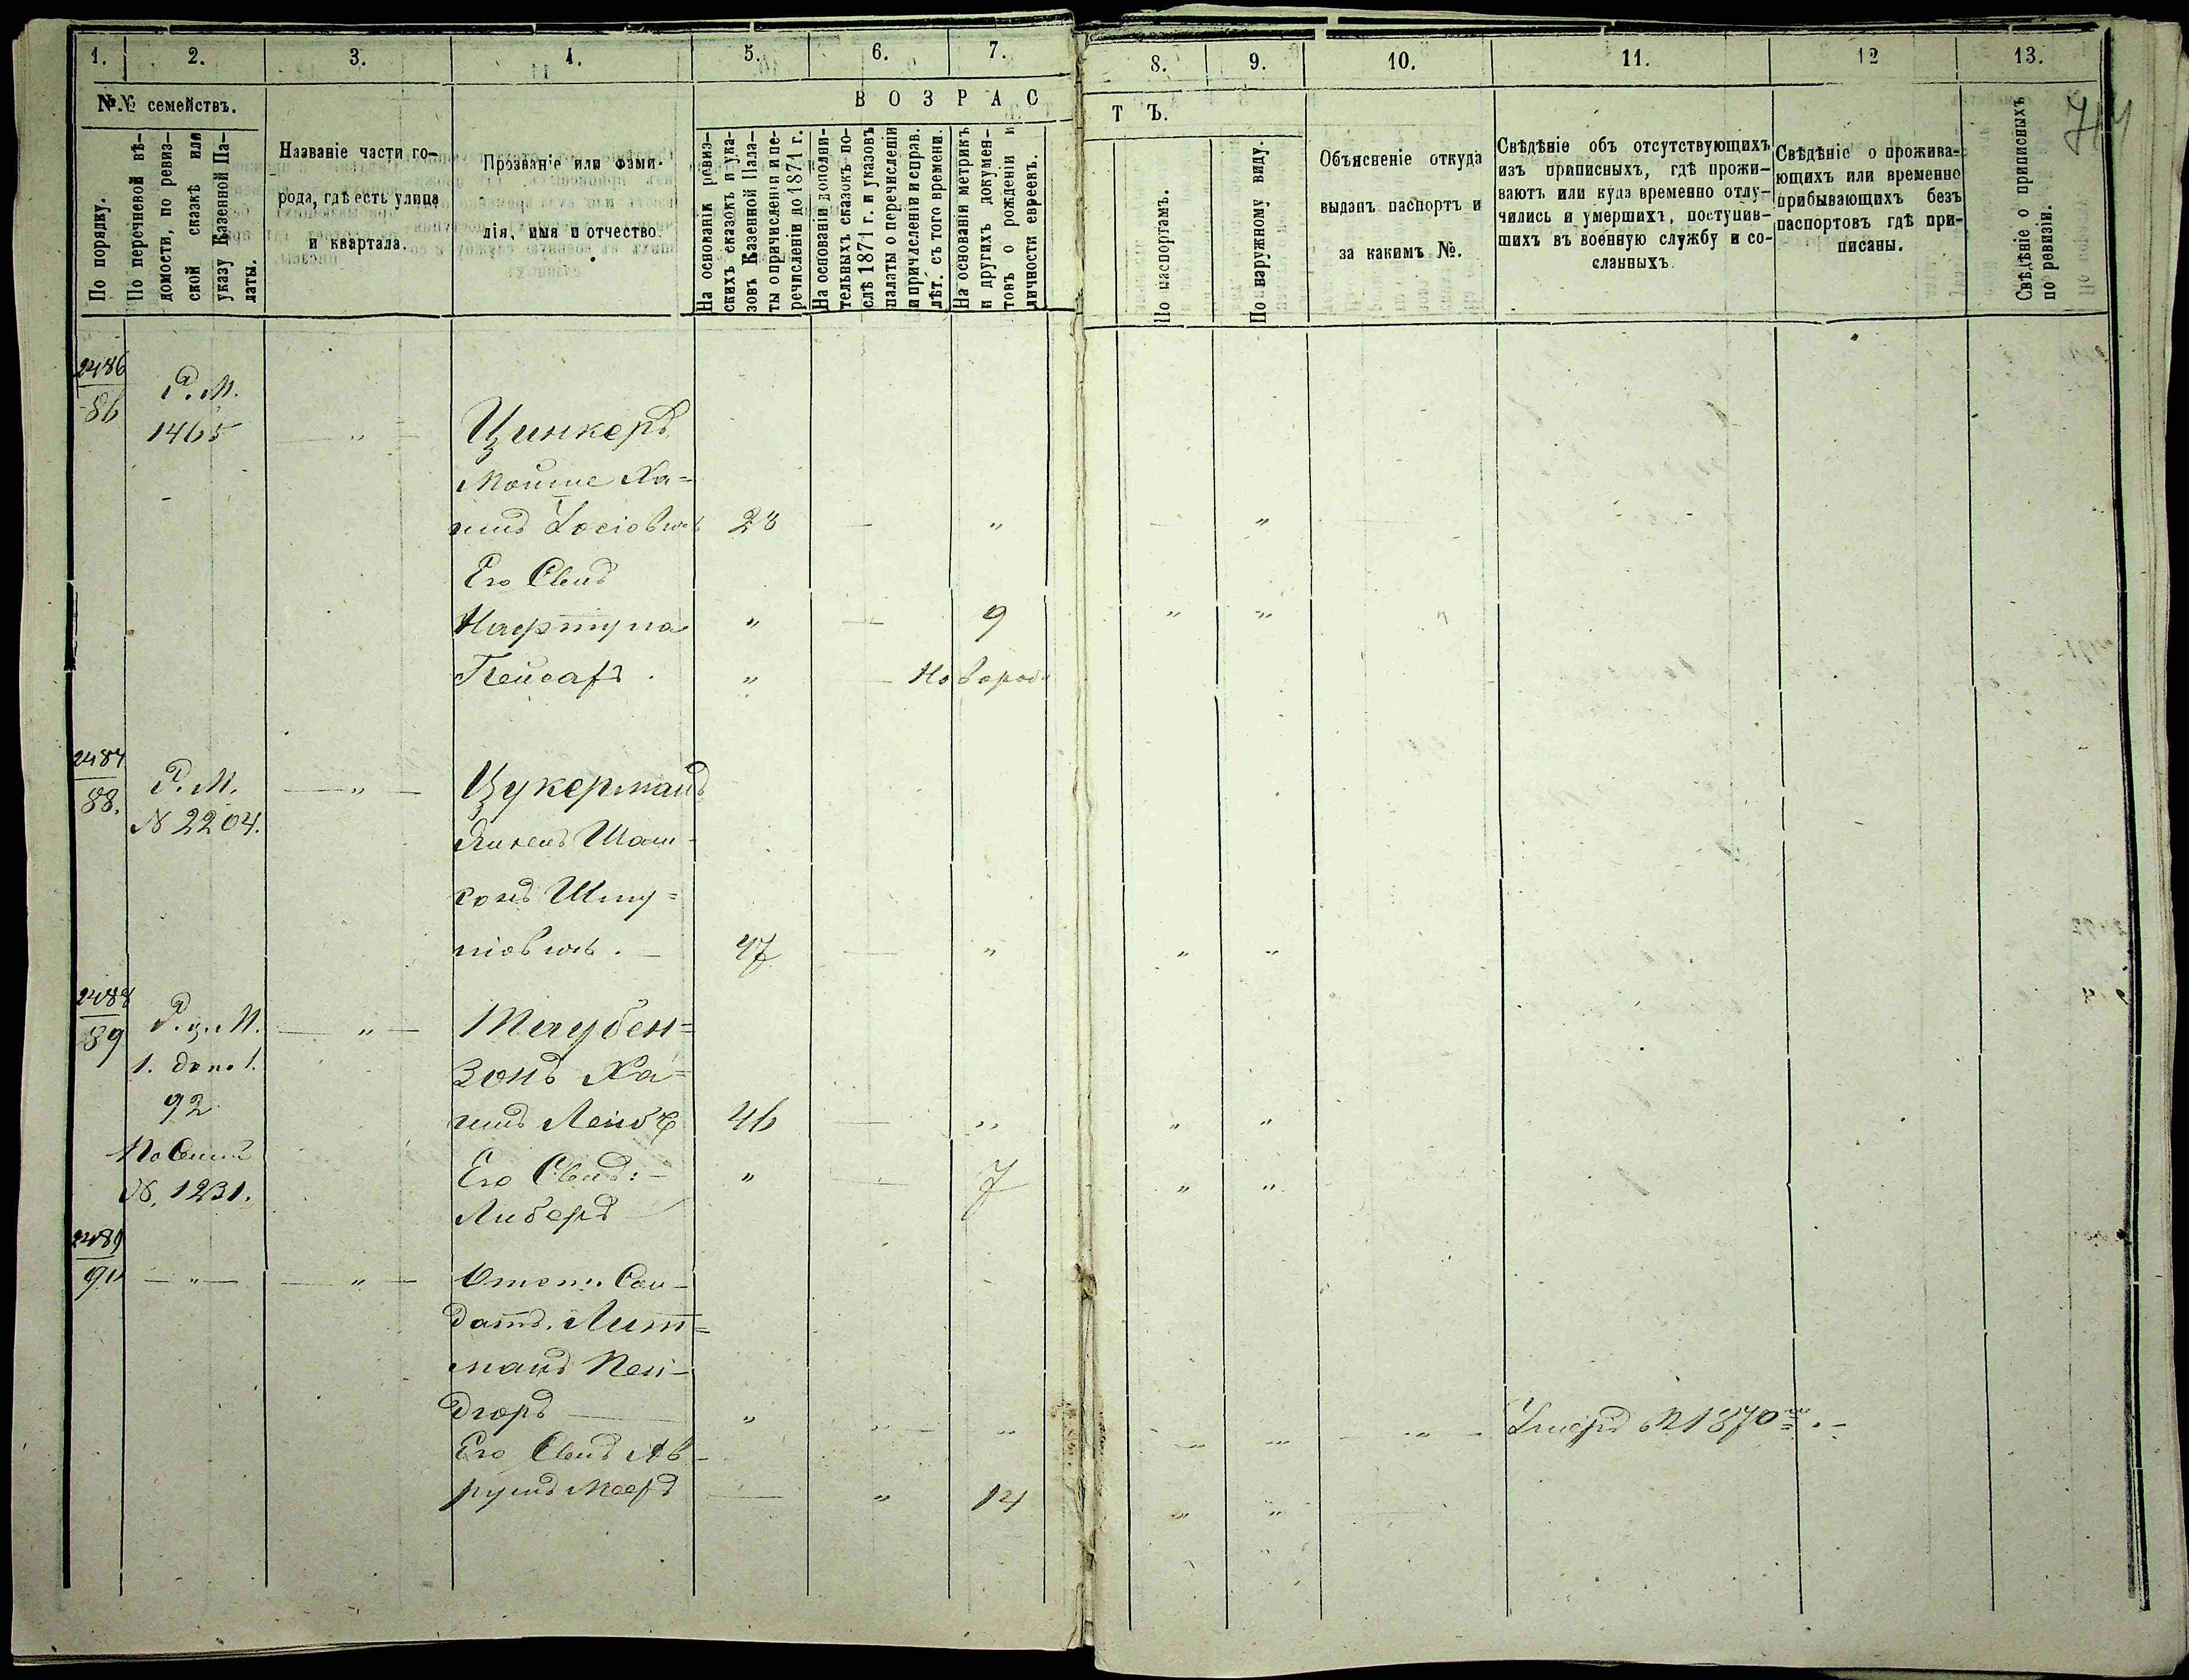 1. 2. 3. 4. 5. 6. 7. 8. 9. 10. 11. 12 13.
№№ семействъ.
В О З Р А С Т Ъ.
По порядку.
По перечневой вѣ-
домости, по ревиз-
ской сказкѣ или
указу Казенной Па-
латы.
Названіе части го-
рода, гдѣ есть улица
и квартала.
Прозваніе или фами-
лія, имя и отчество.
На основаніи ревиз-
скихъ сказокъ и ука-
зовъ Казенной Пала-
ты о причисленіи и пе-
речисленіи до 1871 г.
На основаніи дополни-
тельныхъ сказокъ по-
слѣ 1871 г. и указовъ
палаты о перечисленіи
и причисленіи и справ.
лѣт. съ того времени.
На основаніи метрикъ
и другихъ докумен-
товъ о рожденіи и
личности евреевъ.
По паспортамъ.
По наружному виду.
Объясненіе откуда
выданъ паспортъ и
за какимъ №.
Свѣдѣніе объ отсутствующихъ
изъ приписныхъ, гдѣ прожи-
ваютъ или куда временно отлу-
чились и умершихъ, поступив-
шихъ въ военную службу и со-
сланныхъ.
Свѣдѣніе о прожива-
ющихъ или временно
прибывающихъ безъ
паспортовъ гдѣ при-
писаны.
Свѣдѣніе о приписныхъ
по ревизіи.
2486
86
Р. М.
1465
Цинкеръ
Мойше Ха-
имъ Іосіовичъ 28
Его Сынъ
Нафтула 9
Пейсахъ. Новород.
2487
88.
Р. М.
№ 2204.
Цукерманъ
Янкель Шам-
сонъ Шму-
ліовичъ. 47
2488
89
Р. г. М.
1. допол.
92
№ 1231.
Таубен=
зонъ Ха-
имъ Лейбъ 46
Его Сынъ: 7
Либеръ
2489
90
Отст. Сол-
датъ. Лит=
манъ
Его Сынъ Ав-
румъ Мееръ 14
Умеръ въ 1870 г.